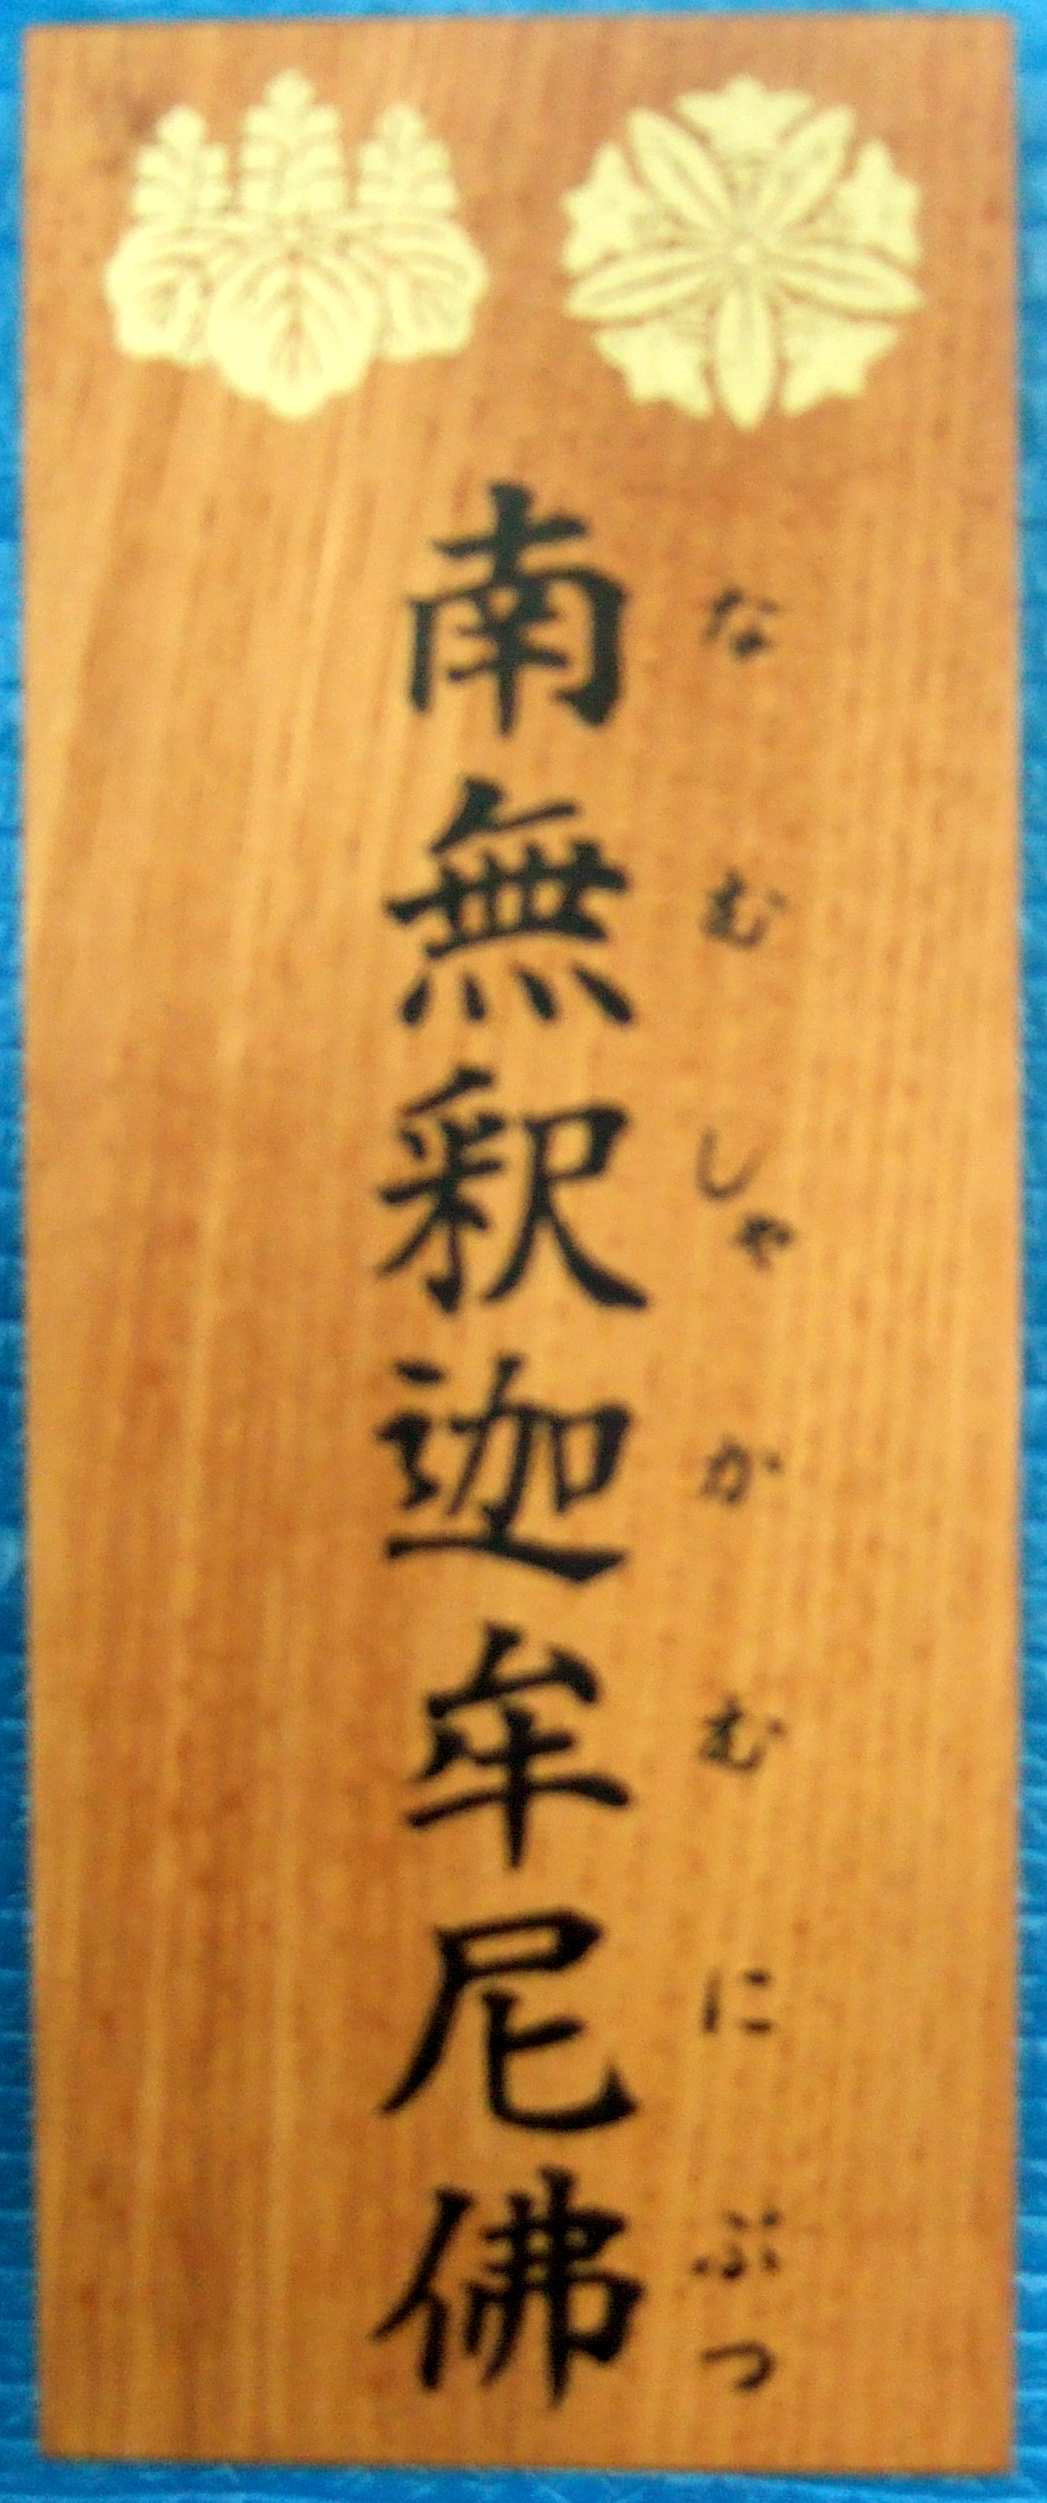 南無釈迦牟尼佛
なむしゃかむにぶつ